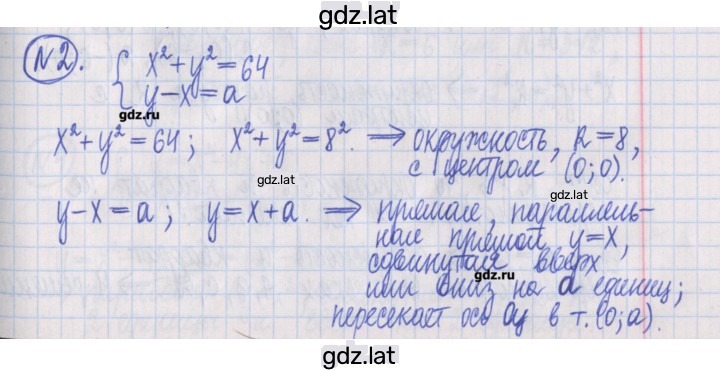 gdz.lat
N2.
{ x²+y²=64
y-x=a
gdz.ru
x²+y²=64; x²+y²=8². ⟹ окружность, R=8,
с центром (0;0).
gdz.lat
y-x=a; y=x+a. ⟹ прямая, параллель-
ная прямой y=x,
сдвинутая вверх
gdz.ru
или вниз на a единиц;
пересекает ось Oy в т. (0;a).
gdz.lat